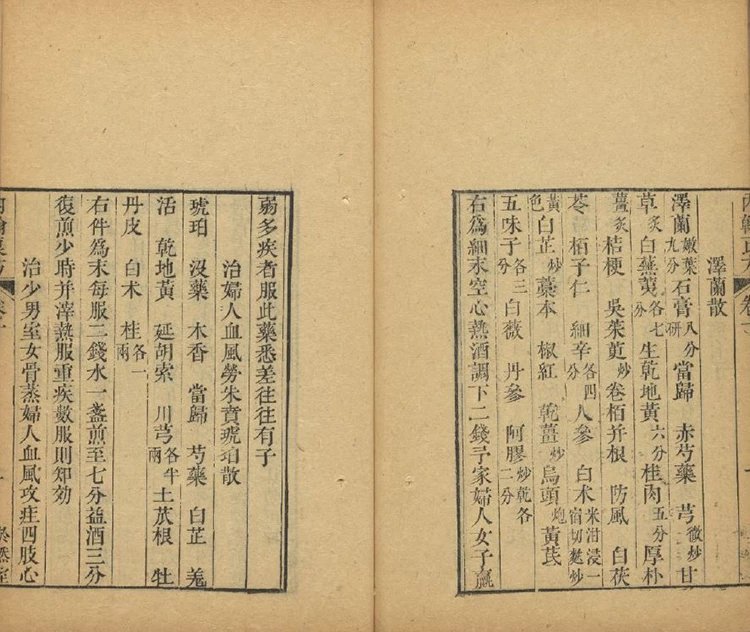 澤蘭散
澤蘭嫩葉九分石膏八分研當歸 赤芍藥 芎微炒甘
草炙白蕪荑各七分生乾地黃六分桂肉五分厚朴
薑炙桔梗 吳茱萸炒卷栢并根 防風 白茯
苓 栢子仁 細辛各四分人參 白术米泔浸一宿切麩炒
黃色白芷炒藁本 椒紅 乾薑炒烏頭炮黃芪
五味子各三分白薇 丹參 阿膠炒乾各二分
右爲細末空心熱酒調下二錢予家婦人女子羸
弱多疾者服此藥悉差往往有子
治婦人血風勞朱賁琥珀散
琥珀 沒藥 木香 當歸 芍藥 白芷 羗
活 乾地黃 延胡索 川芎各半兩土苽根 牡
丹皮 白术 桂各一兩
右件爲末每服二錢水一盞煎至七分益酒三分
復煎少時并滓熱服重疾數服則知效
治少男室女骨蒸婦人血風攻疰四肢心